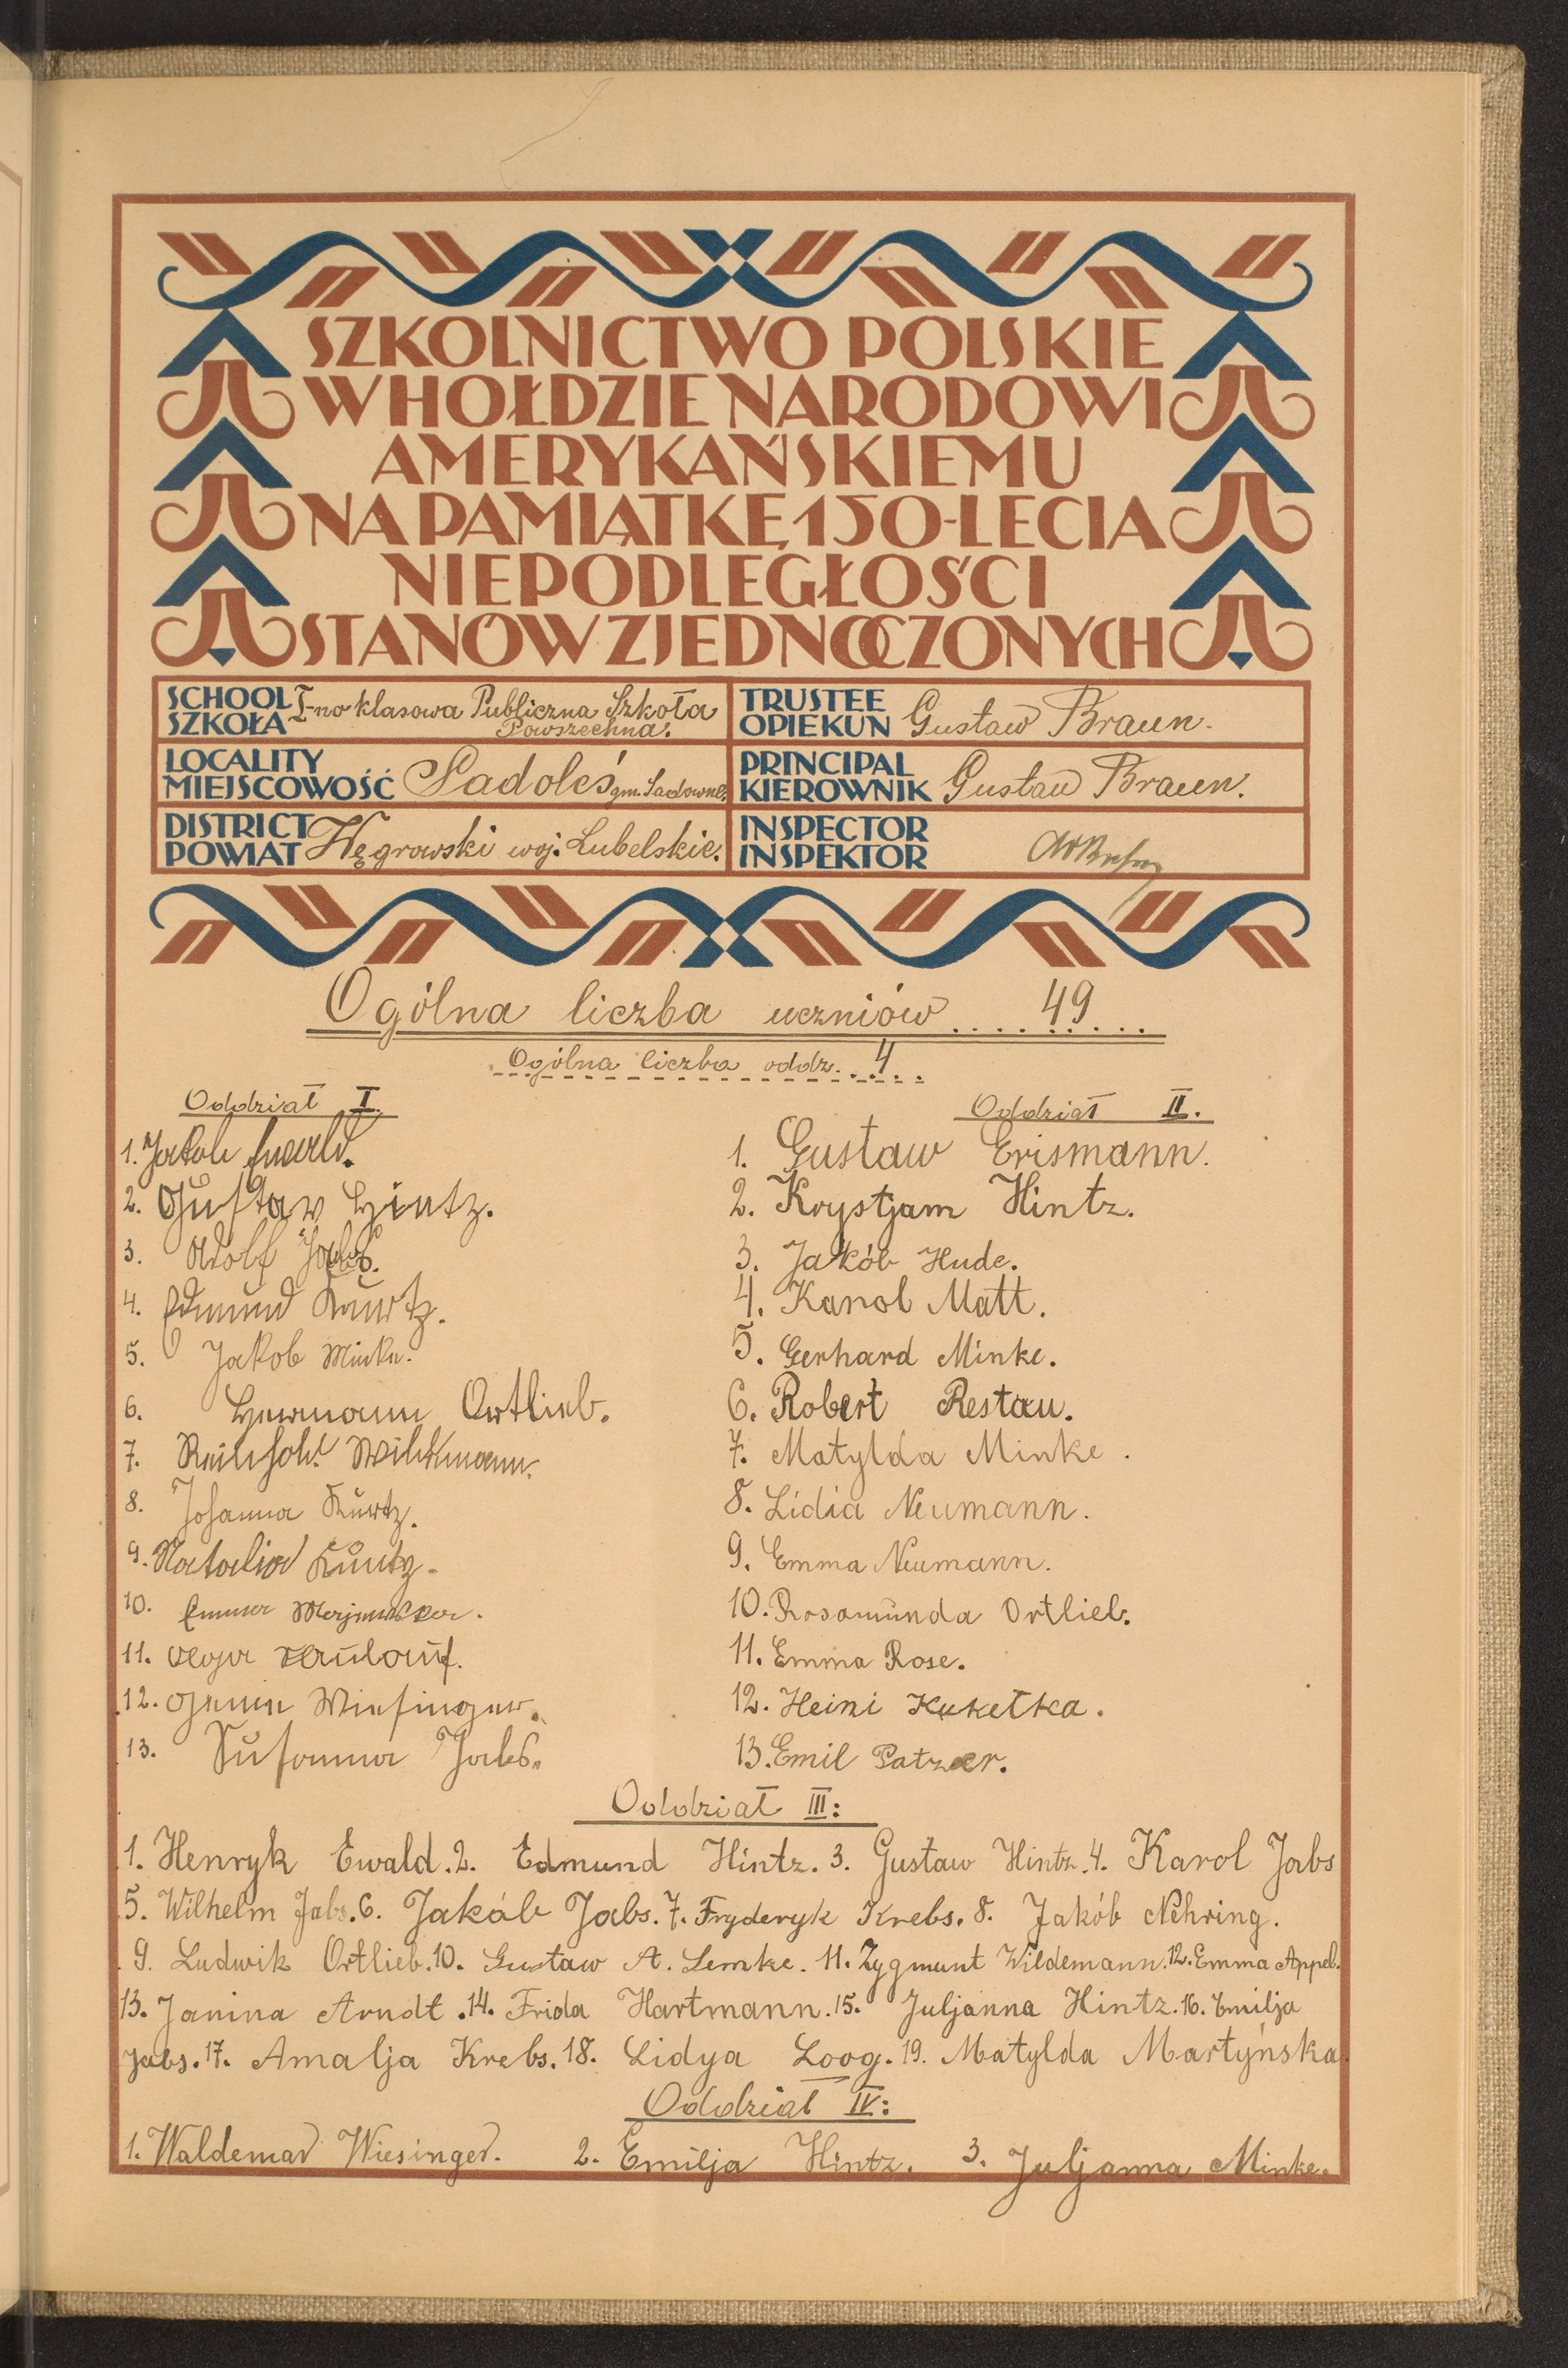 SZKOLNICTWO POLSKIE
W HOŁDZIE NARODOWI
AMERYKAŃSKIEMU
NA PAMIĄTKĘ 150-LECIA
NIEPODLEGŁOŚCI
STANÓW ZJEDNOCZONYCH
SCHOOL
SZKOŁA
I-no klasowa Publiczna Szkoła
Powszechna.
TRUSTEE
OPIEKUN
Gustaw Braun.
LOCALITY
MIEJSCOWOŚĆ
Sadoleś gm. Sadowne.
PRINCIPAL
KIEROWNIK
Gustaw Braun.
DISTRICT
POWIAT
Węgrowski woj. Lubelskie.
INSPECTOR
INSPEKTOR
Ogólna liczba uczniów .... 49 ...
Ogólna liczba oddz. . 4 . .
Oddział I.
1. Jakob Ewald.
2. Gustav Hintz.
3. Adolf Jabs.
4. Edmund Kurtz.
5. Jakob Minke.
6. Hermann Ortlieb.
7. Reinhold Wildemann.
8. Johanna Kurtz.
9. Natalia Kuntz.
10. Emma
11. Olga
12. Wiesinger.
13. Susanna Jabs.
Oddział II.
1. Gustaw Erismann.
2. Krystjam Hintz.
3. Jakób Hude.
4. Karol Matt.
5. Gerhard Minke.
6. Robert Restau.
7. Matylda Minke.
8. Lidia Neumann.
9. Emma Neumann.
10. Rosamunda Ortlieb.
11. Emma Rose.
12. Heini Kuketka.
13. Emil Patzer.
Oddział III:
1. Henryk Ewald. 2. Edmund Hintz. 3. Gustaw Hintz. 4. Karol Jabs
5. Wilhelm Jabs. 6. Jakób Jabs. 7. Fryderyk Krebs. 8. Jakób Nehring.
9. Ludwik Ortlieb. 10. Gustaw A. Lemke. 11. Zygmunt Wildemann. 12. Emma Appel.
13. Janina Arndt. 14. Frida Hartmann. 15. Juljanna Hintz. 16. Emilja
Jabs. 17. Amalja Krebs. 18. Lidya Loog. 19. Matylda Martyńska
Oddział IV:
1. Waldemar Wiesinger. 2. Emilja Hintz. 3. Juljanna Minke.